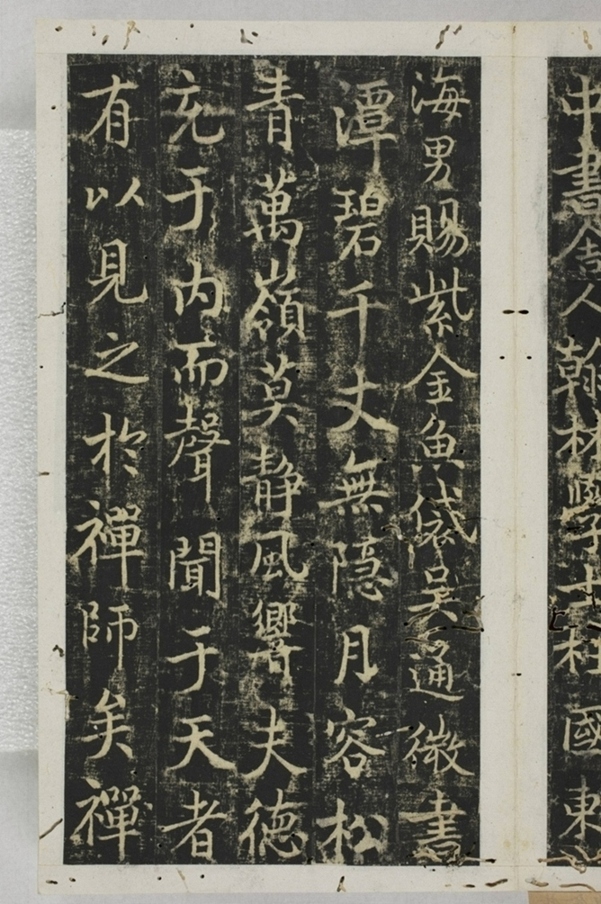 中書舍人翰林學士柱國東
海男賜紫金魚袋吳通微書
潭碧千丈無隱月容松
青萬嶺莫静風響夫德
充于内而聲聞于天者
有以見之於禪師矣禪